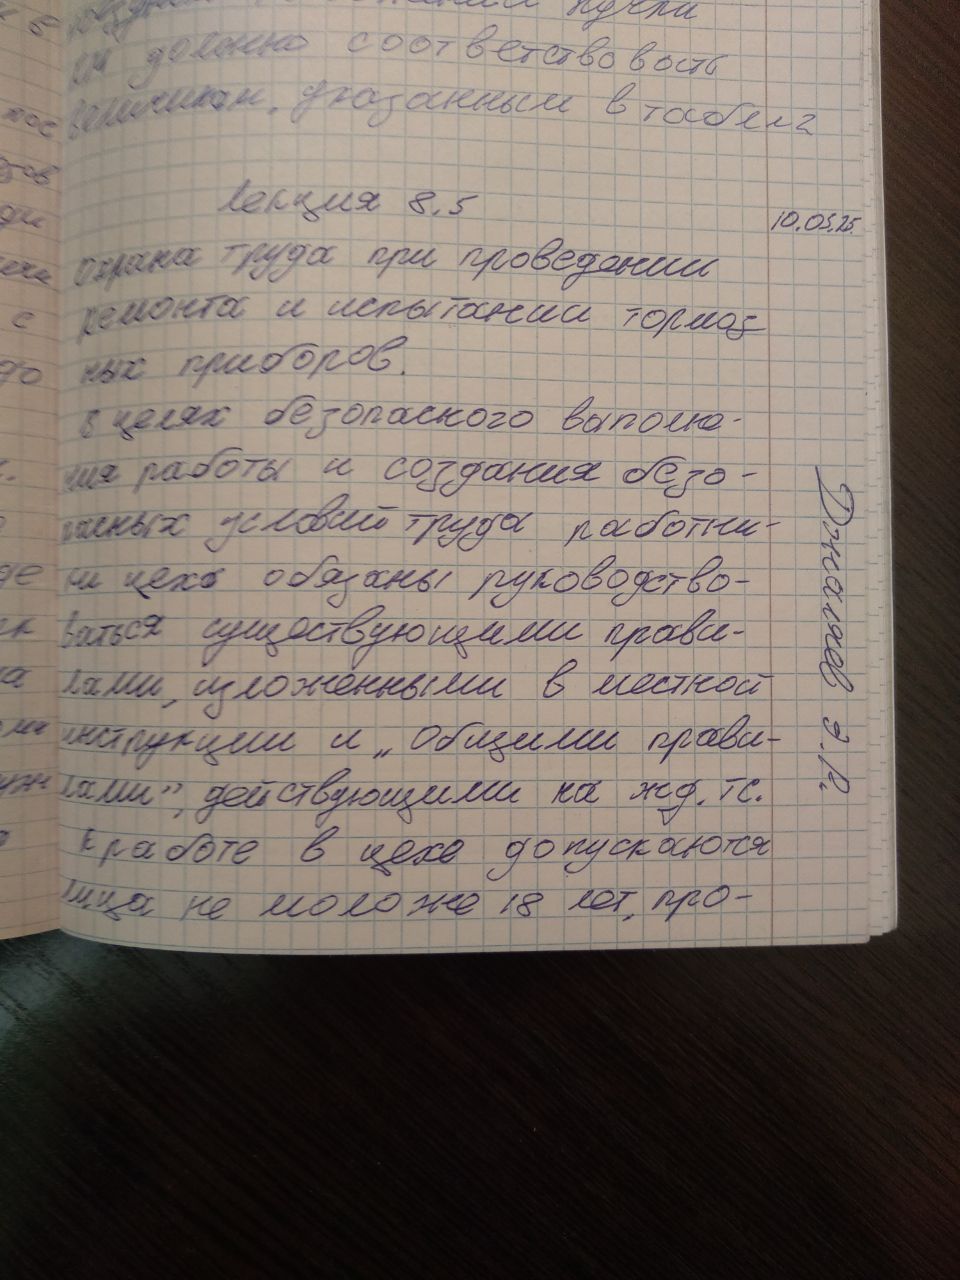 должно соответствовать
величинам, указанным в таблице
Лекция 8.5
10.05.25.
Охрана труда при проведении
ремонта и испытании тормоз
ных приборов.
В целях безопасного выполне-
ния работы и создания безо-
пасных условий труда работни-
ки цеха обязаны руководство-
ваться существующими прави-
лами, изложенными в местной
инструкции и „Общими прави-
лами", действующими на жд. тс.
К работе в цехе допускаются
лица не моложе 18 лет, про-
Джаляев Э.Р.